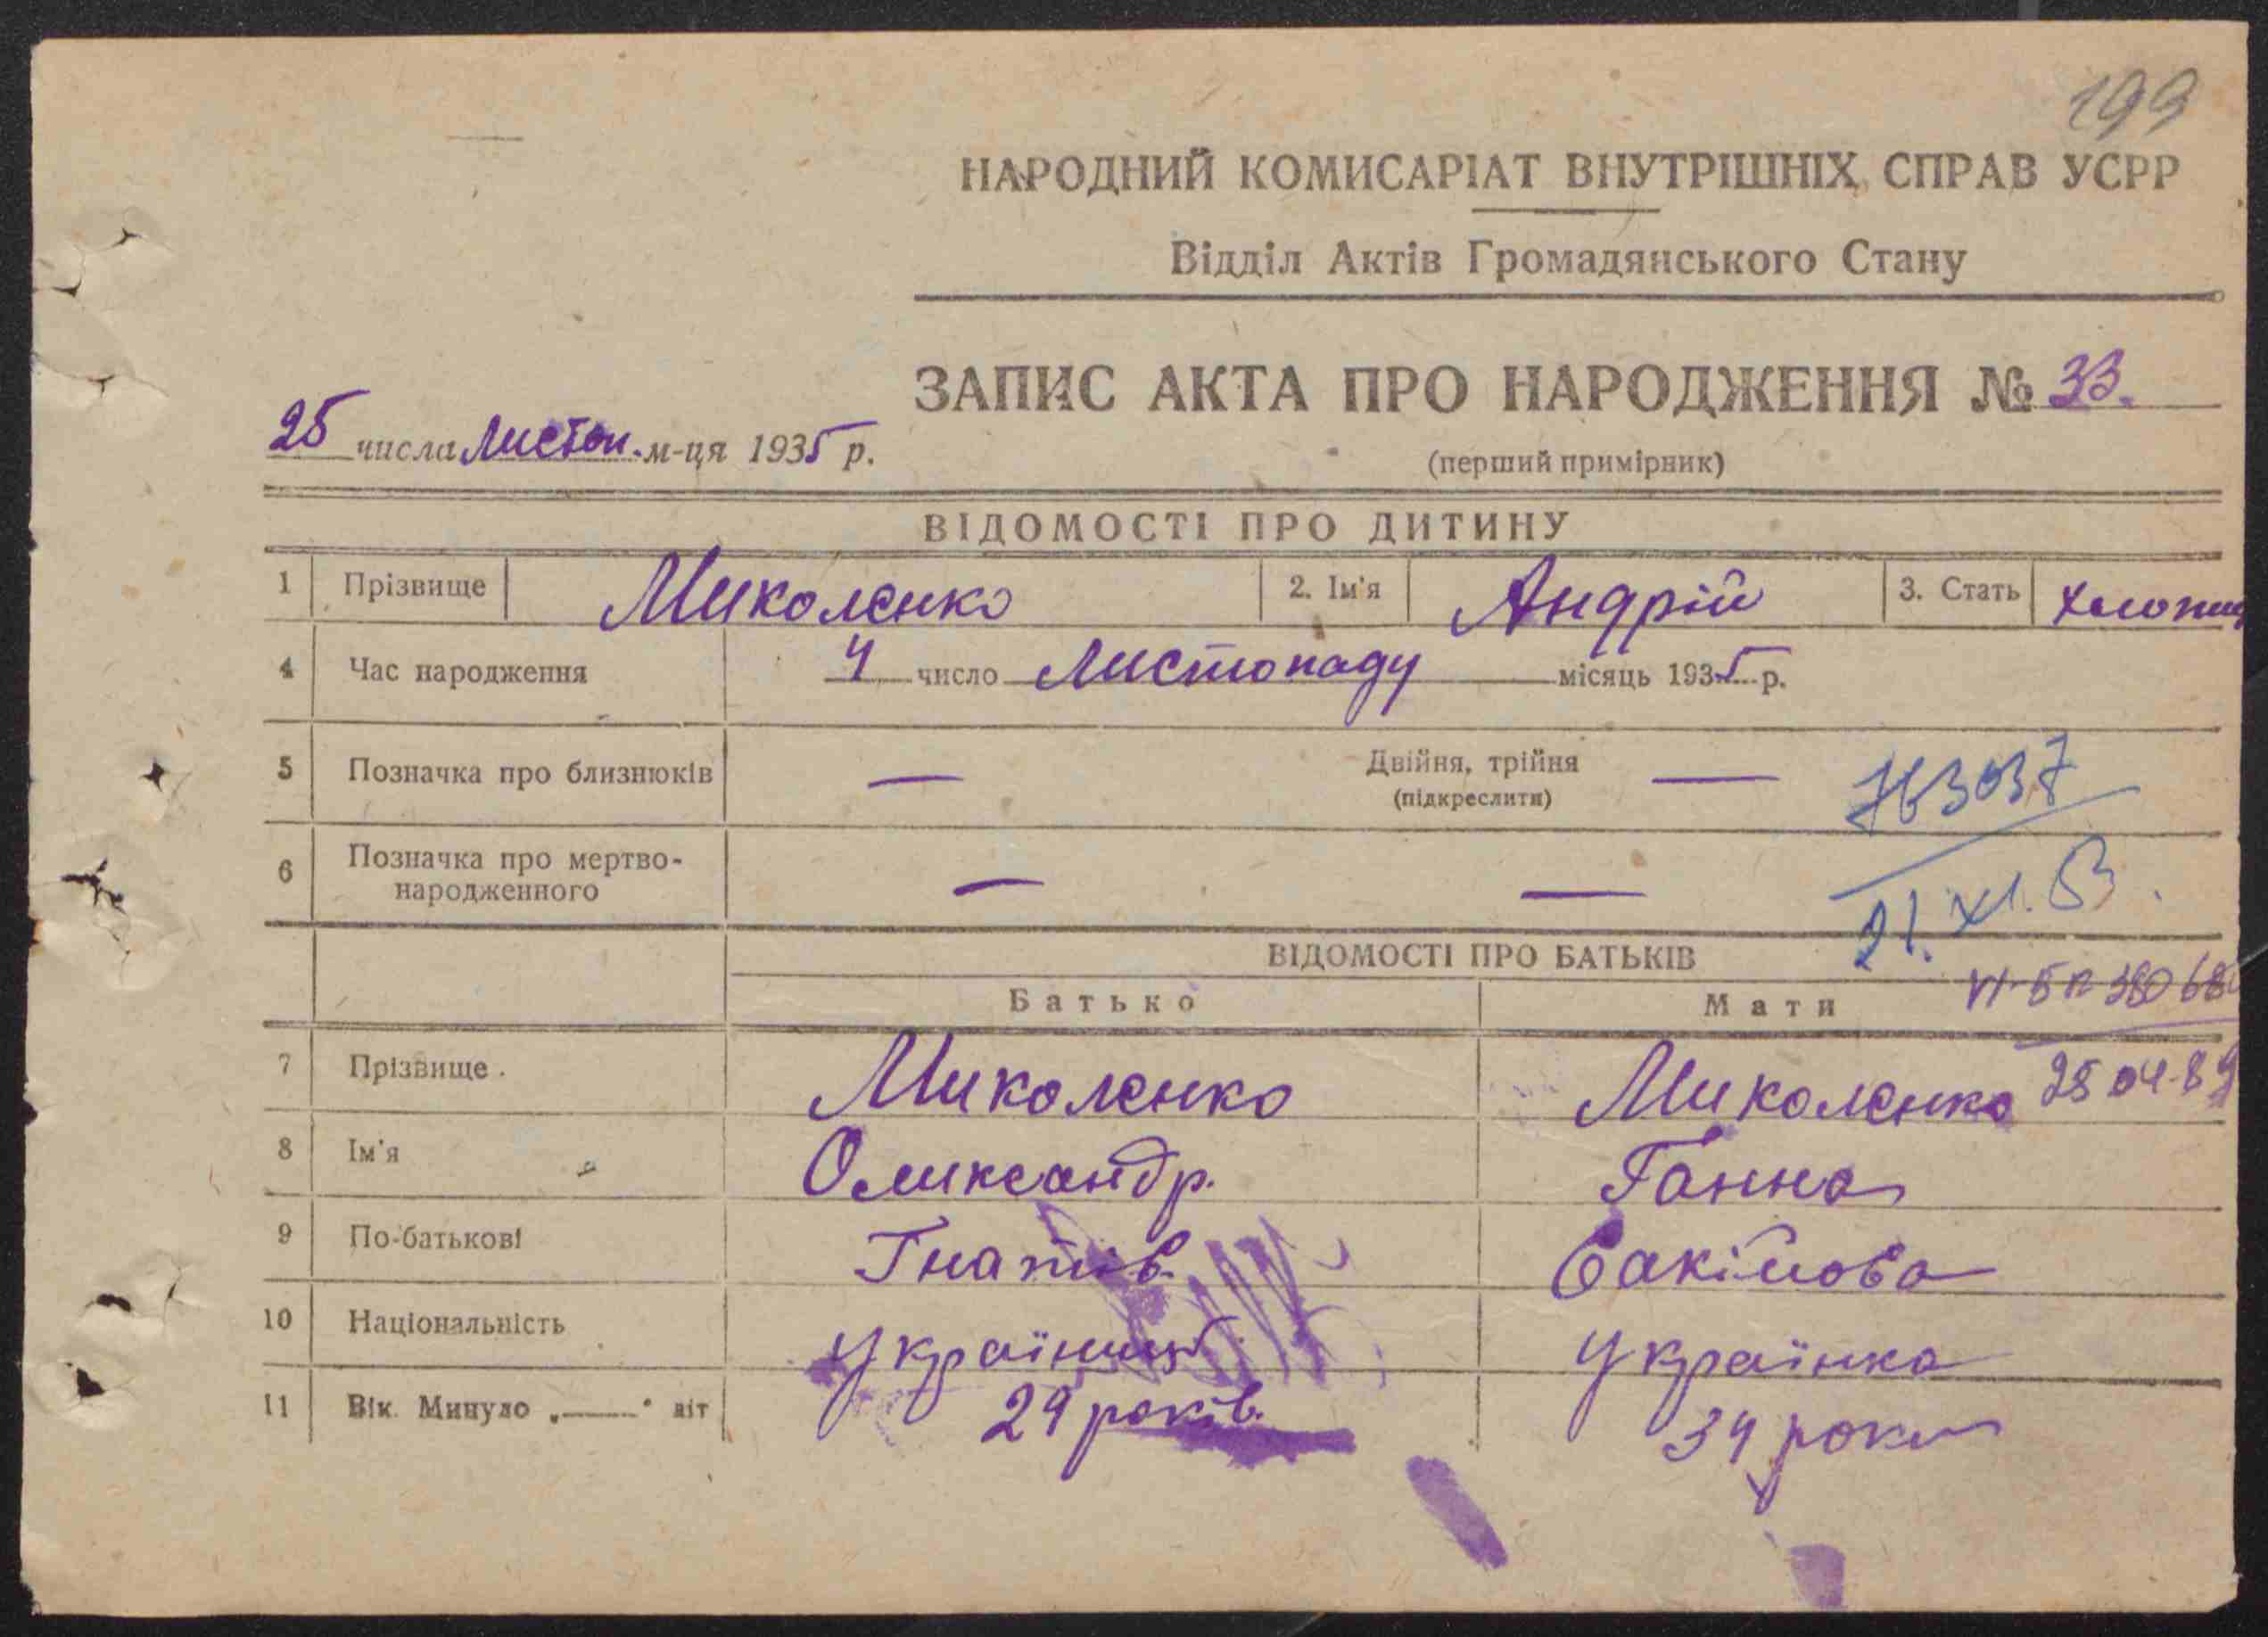 199
НАРОДНИЙ КОМИСАРІАТ ВНУТРІШНІХ СПРАВ УСРР
Відділ Актів Громадянського Стану
ЗАПИС АКТА ПРО НАРОДЖЕННЯ № 33.
25 числа Листоп. м-ця 1935 р.
(перший примірник)
ВІДОМОСТІ ПРО ДИТИНУ
1 Прізвище Миколенко 2. Ім'я Андрій 3. Стать
4 Час народження 4 число Листопаду місяць 1935 р.
5 Позначка про близнюків — Двійня, трійня —
(підкреслити)
763037
6 Позначка про мертво-
народженного — —
21. XI. 53.
ВІДОМОСТІ ПРО БАТЬКІВ
Батько Мати
7 Прізвище. Миколенко Миколенко
25 04-89
8 Ім'я Олександр. Ганна
9 По-батькові Гнатів. Єакімова
10 Національність Українець Українка
11 Вік. Минуло „——" літ 29 років. 34 роки